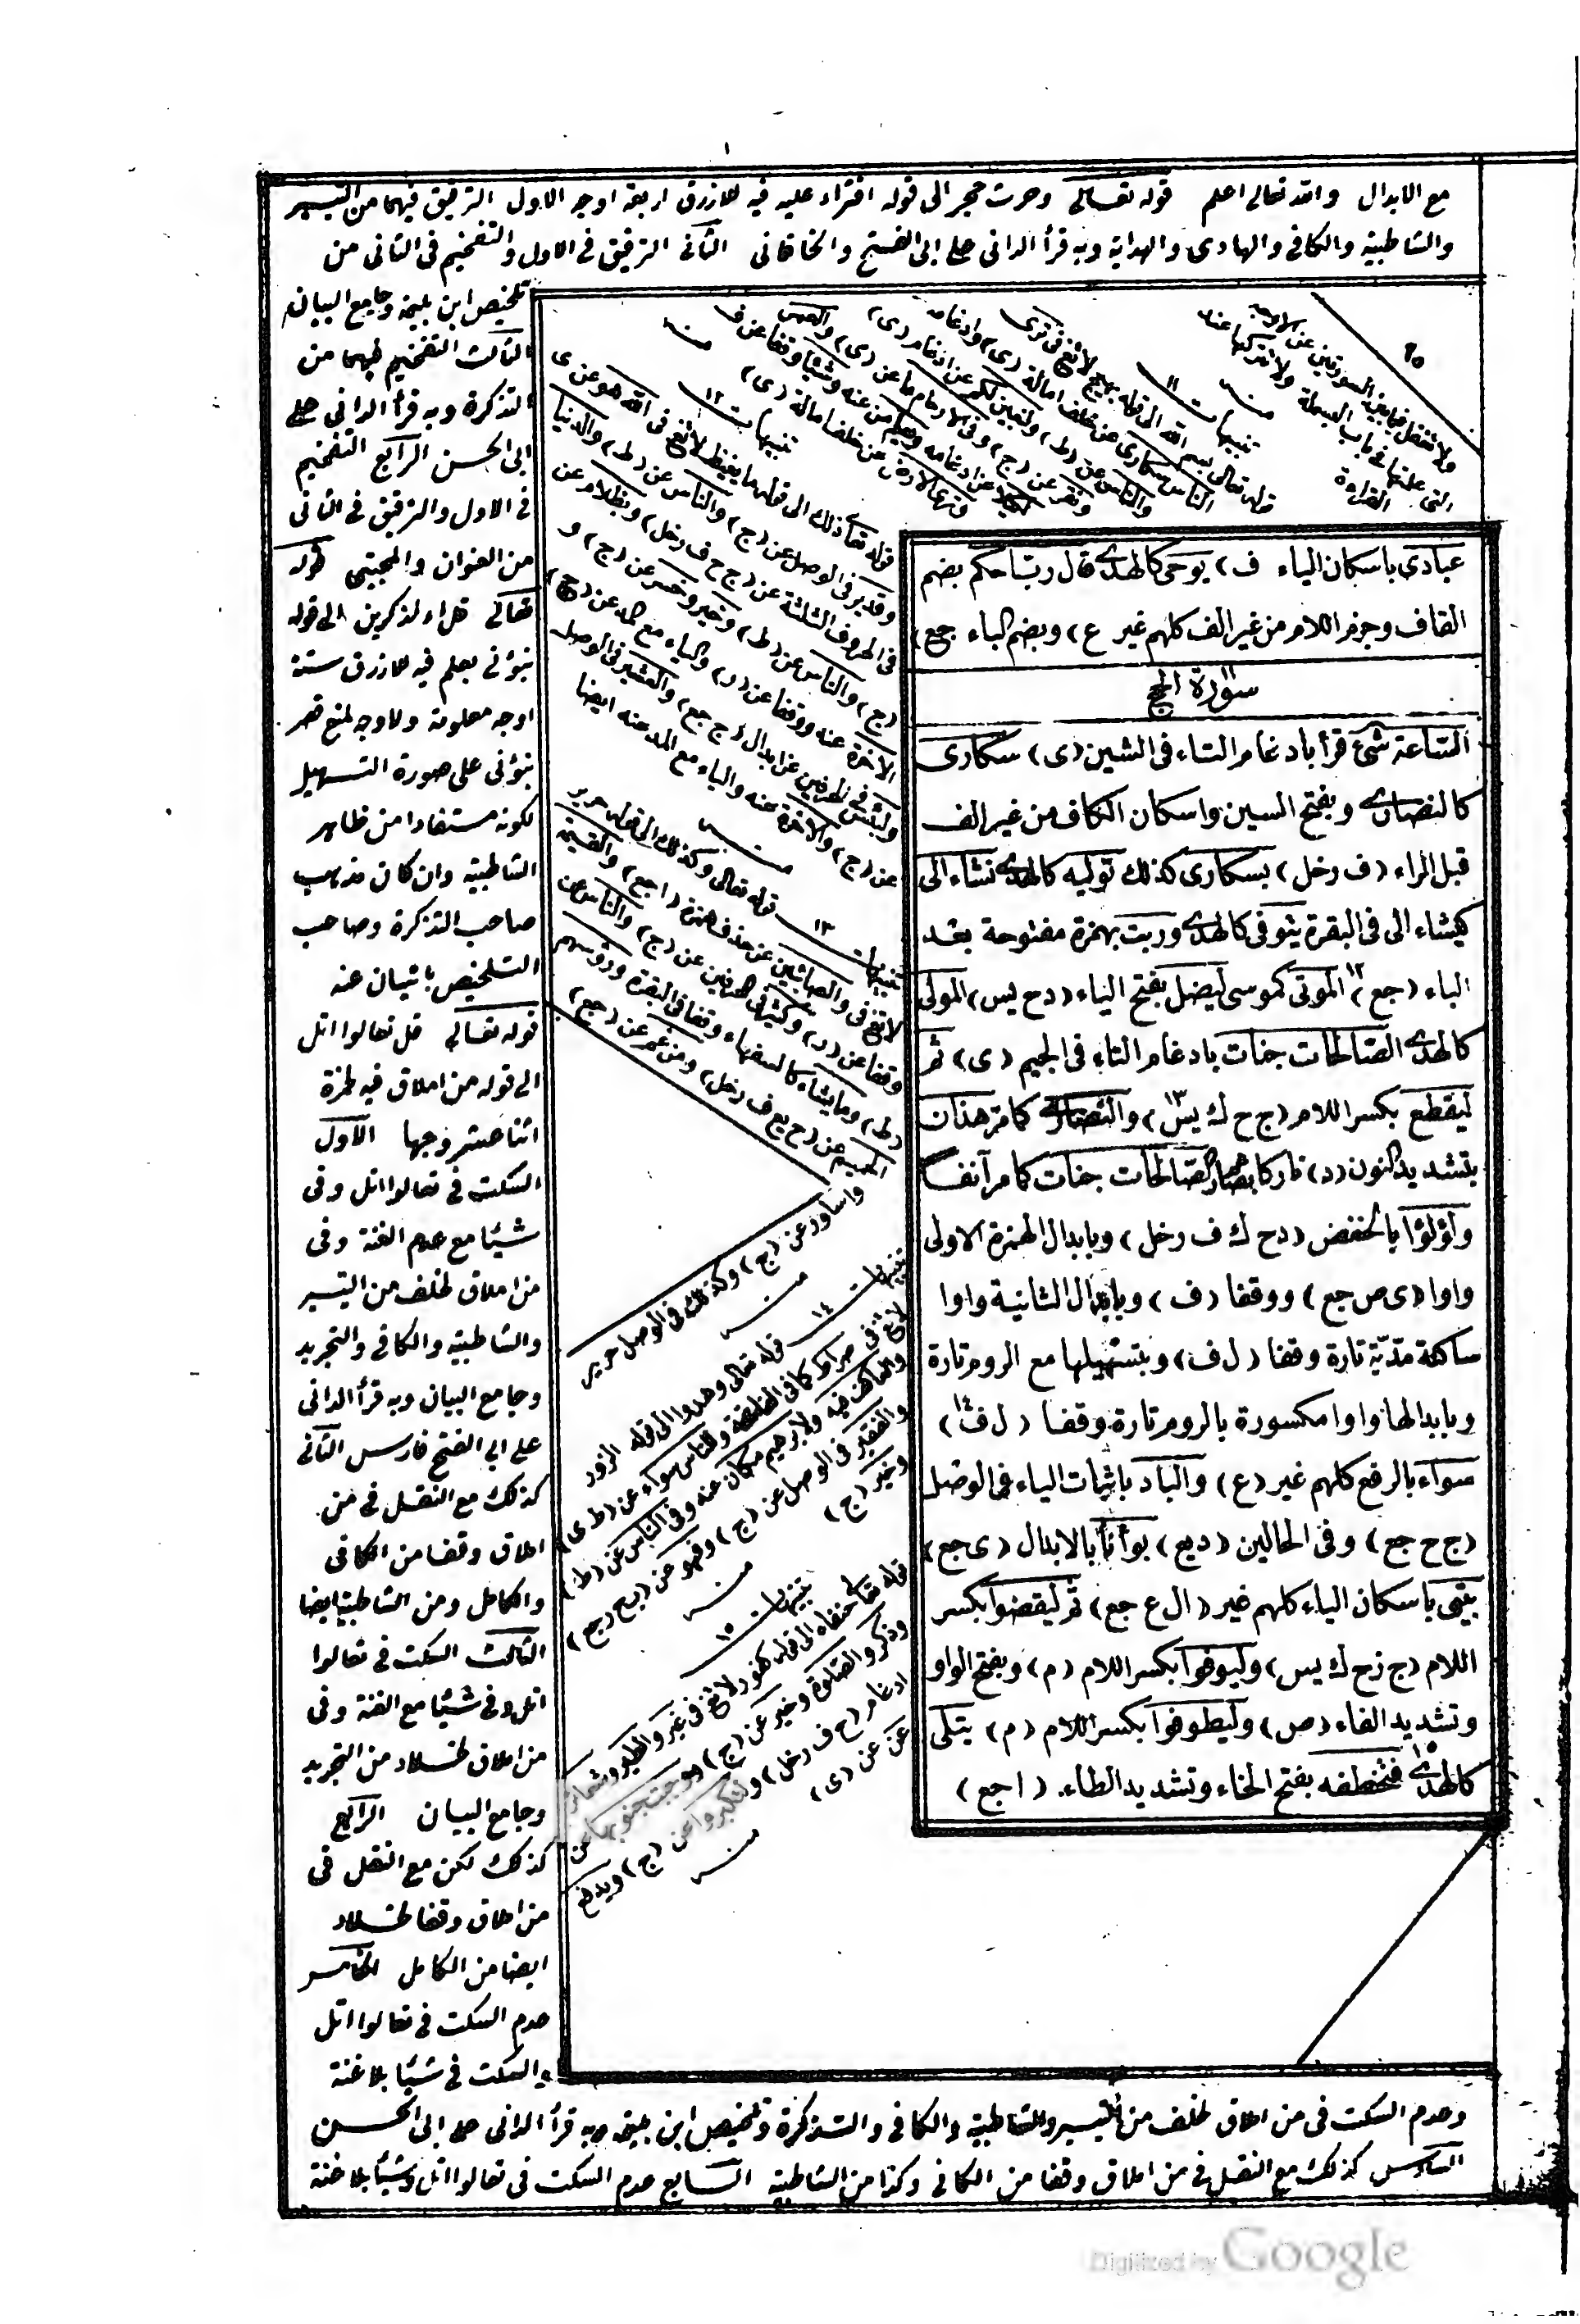 مع الابدال والله تعالى اعلم قوله تعالى وحرث حجر الى قوله افتراء عليه فيه للازرق اربعة اوجه الاول الترقيق فيهما من التيسير
والشاطبية والكافى والهادى والهداية وبه قرأ الدانى على ابى الفتح والخاقانى الثانى الترقيق فى الاول والتفخيم فى الثانى من
تلخيص ابن بليمة وجامع البيان
الثالث التفخيم فيهما من
التذكرة وبه قرأ الدانى على
ابى الحسن الرابع التفخيم
فى الاول والترقيق فى الثانى
من العنوان والمجتبى قوله
تعالى قل اءلذكرين الى قوله
نبؤنى بعلم فيه للازرق ستة
اوجه معلومة ولا وجه لمنع قصر
نبؤنى على صورة التسهيل
لكونه مستفادا من ظاهر
الشاطبية وان كان مذهب
صاحب التذكرة وصاحب
التلخيص باتيان عنه
قوله تعالى قل تعالوا اتل
الى قوله من املاق فيه لحمزة
اثنا عشر وجها الاول
السكت فى تعالوا اتل وفى
شيئا مع عدم الغنة وفى
من املاق لخلف من التيسير
والشاطبية والكافى والتجريد
وجامع البيان وبه قرأ الدانى
على ابى الفتح فارس الثانى
كذلك مع النقل فى من
املاق وقفا من الكافى
والكامل ومن الشاطبية ايضا
الثالث السكت فى تعالوا
اتل وفى شيئا مع الغنة وفى
من املاق لخلاد من التجريد
وجامع البيان الرابع
كذلك لكن مع النقل فى
من املاق وقفا لخلاد
ايضا من الكامل الخامس
عدم السكت فى تعالوا اتل
والسكت فى شيئا بلا غنة
وعدم السكت فى من املاق لخلف من التيسير والشاطبية والكافى والتذكرة وتلخيص ابن بليمة وبه قرأ الدانى على ابى الحسن
السادس كذلك مع النقل فى من املاق وقفا من الكافى وكذا من الشاطبية السابع عدم السكت فى تعالوا اتل وشيئا بلا غنة
٦٥
ولا تغفل فيما بين السورتين عن الاوجه
التى علمتها فى باب البسملة ولا نذكرها عند
القراءة
منـــه
تنبيهات ١١
قوله تعالى بسم الله الى قوله بهيج لا تغ فى ترى
الناس سكارى عن خلف امالة (ى) وادغامه
منـــه
تنبيهات ١٢
قوله تعا ذلك الى قوله ما يغيظ لا تغ فى الله هو عن ى
وقدير فى الوصل عن (ج) والناس عن (ط) والدنيا
فى الحروف الثلثة عن (ج ح ف رخل) وبظلام عن
(ج) والناس عن (ط) وخير وخسر عن (ج) و
الآخرة عنه ووقفا عن (ر)
ولبئس فى الحرفين عن ابدال (ج جع) والعشير فى الوصل
عن (ج) والآخرة عنه والياء مع المد عنه ايضا
منـــه
تنبيهات ١٣ قوله تعالى وكذلك الى قوله حرير
لا تغ فى والصابئين عن حذف همزة (ا جع) والقيمة
وقفا عن (ر) وكثير فى الحرفين عن (ج) والناس عن
(ط) وما يشاء كالسفهاء وقفا فى البقرة ورؤسهم
الحميم عن (ح يع ف رخل) ومن غم عن (جع)
واساور عن (ج) وكذلك فى الوصل حرير
منـــه
تنبيهات ١٤ قوله تعالى وهدوا الى قوله الزور
لا تغ فى صراط كما فى الفاتحة وللناس سواء عن (ط ى)
والعاكف فيه ولابرهيم مكان عنه وفى الناس عن (ط)
والفقير فى الوصل عن (ج) وفهو عن (ب ح ر جع)
وخير (ج)
منـــه
تنبيهات ١٥
قوله تعالى حنفاء الى قوله كفور لا تغ فى غير والطير وشعائر
وذكر والصلوة وخير عن (ج) ووجبت جنوبها عن
ادغام (ح ف رخل) ولتكبروا عن (ج) ويدفع
عن عن (ى)
منـــه
عبادى باسكان الياء ف) يوحى كالهدى قال رب احكم بضم
القاف وجزم اللام من غير الف كلهم غير ع) وبضم الباء جع)
سورة الحج
الساعة شئ قرأ بادغام التاء فى الشين (ى) سكارى
كالنصارى وبفتح السين واسكان الكاف من غير الف
قبل الراء (ف رخل) بسكارى كذلك توليه كالهدى نشاء الى
كيشاء الى فى البقرة يتوفى كالهدى وربت بهمزة مفتوحة بعد
الباء (جع) ١٢ الموتى كموسى ليضل بفتح الياء (د ح يس) المولى
كالهدى الصالحات جنات بادغام التاء فى الجيم (ى) ثم
ليقطع بكسر اللام (ج ح ك يس ١٣) والنصارى كما مر هذان
بتشديد النون (د) نار كابصار الصالحات جنات كما مر آنفا
ولؤلؤا بالخفض (د ح ك ف رخل) وبابدال الهمزة الاولى
واوا (ى ص جع) ووقفا (ف) وبابدال الثانية واوا
ساكنة مدية تارة وقفا (ل ف) وبتسهيلها مع الروم تارة
وبابدالها واوا مكسورة بالروم تارة وقفا (ل ف ١٤)
سواء بالرفع كلهم غير (ع) والباد باثبات الياء فى الوصل
(ج ح جع) وفى الحالين (د يع) بوأنا بالابدال (ى جع)
بيتى باسكان الياء كلهم غير (ا ل ع جع) ثم ليقضوا بكسر
اللام (ج ز ح ك يس) وليوفوا بكسر اللام (م) وبفتح الواو
وتشديد الفاء (ص) وليطوفوا بكسر اللام (م) يتلى
كالهدى ١٥ فتخطفه بفتح الخاء وتشديد الطاء. (ا جع)
Digitized by Google